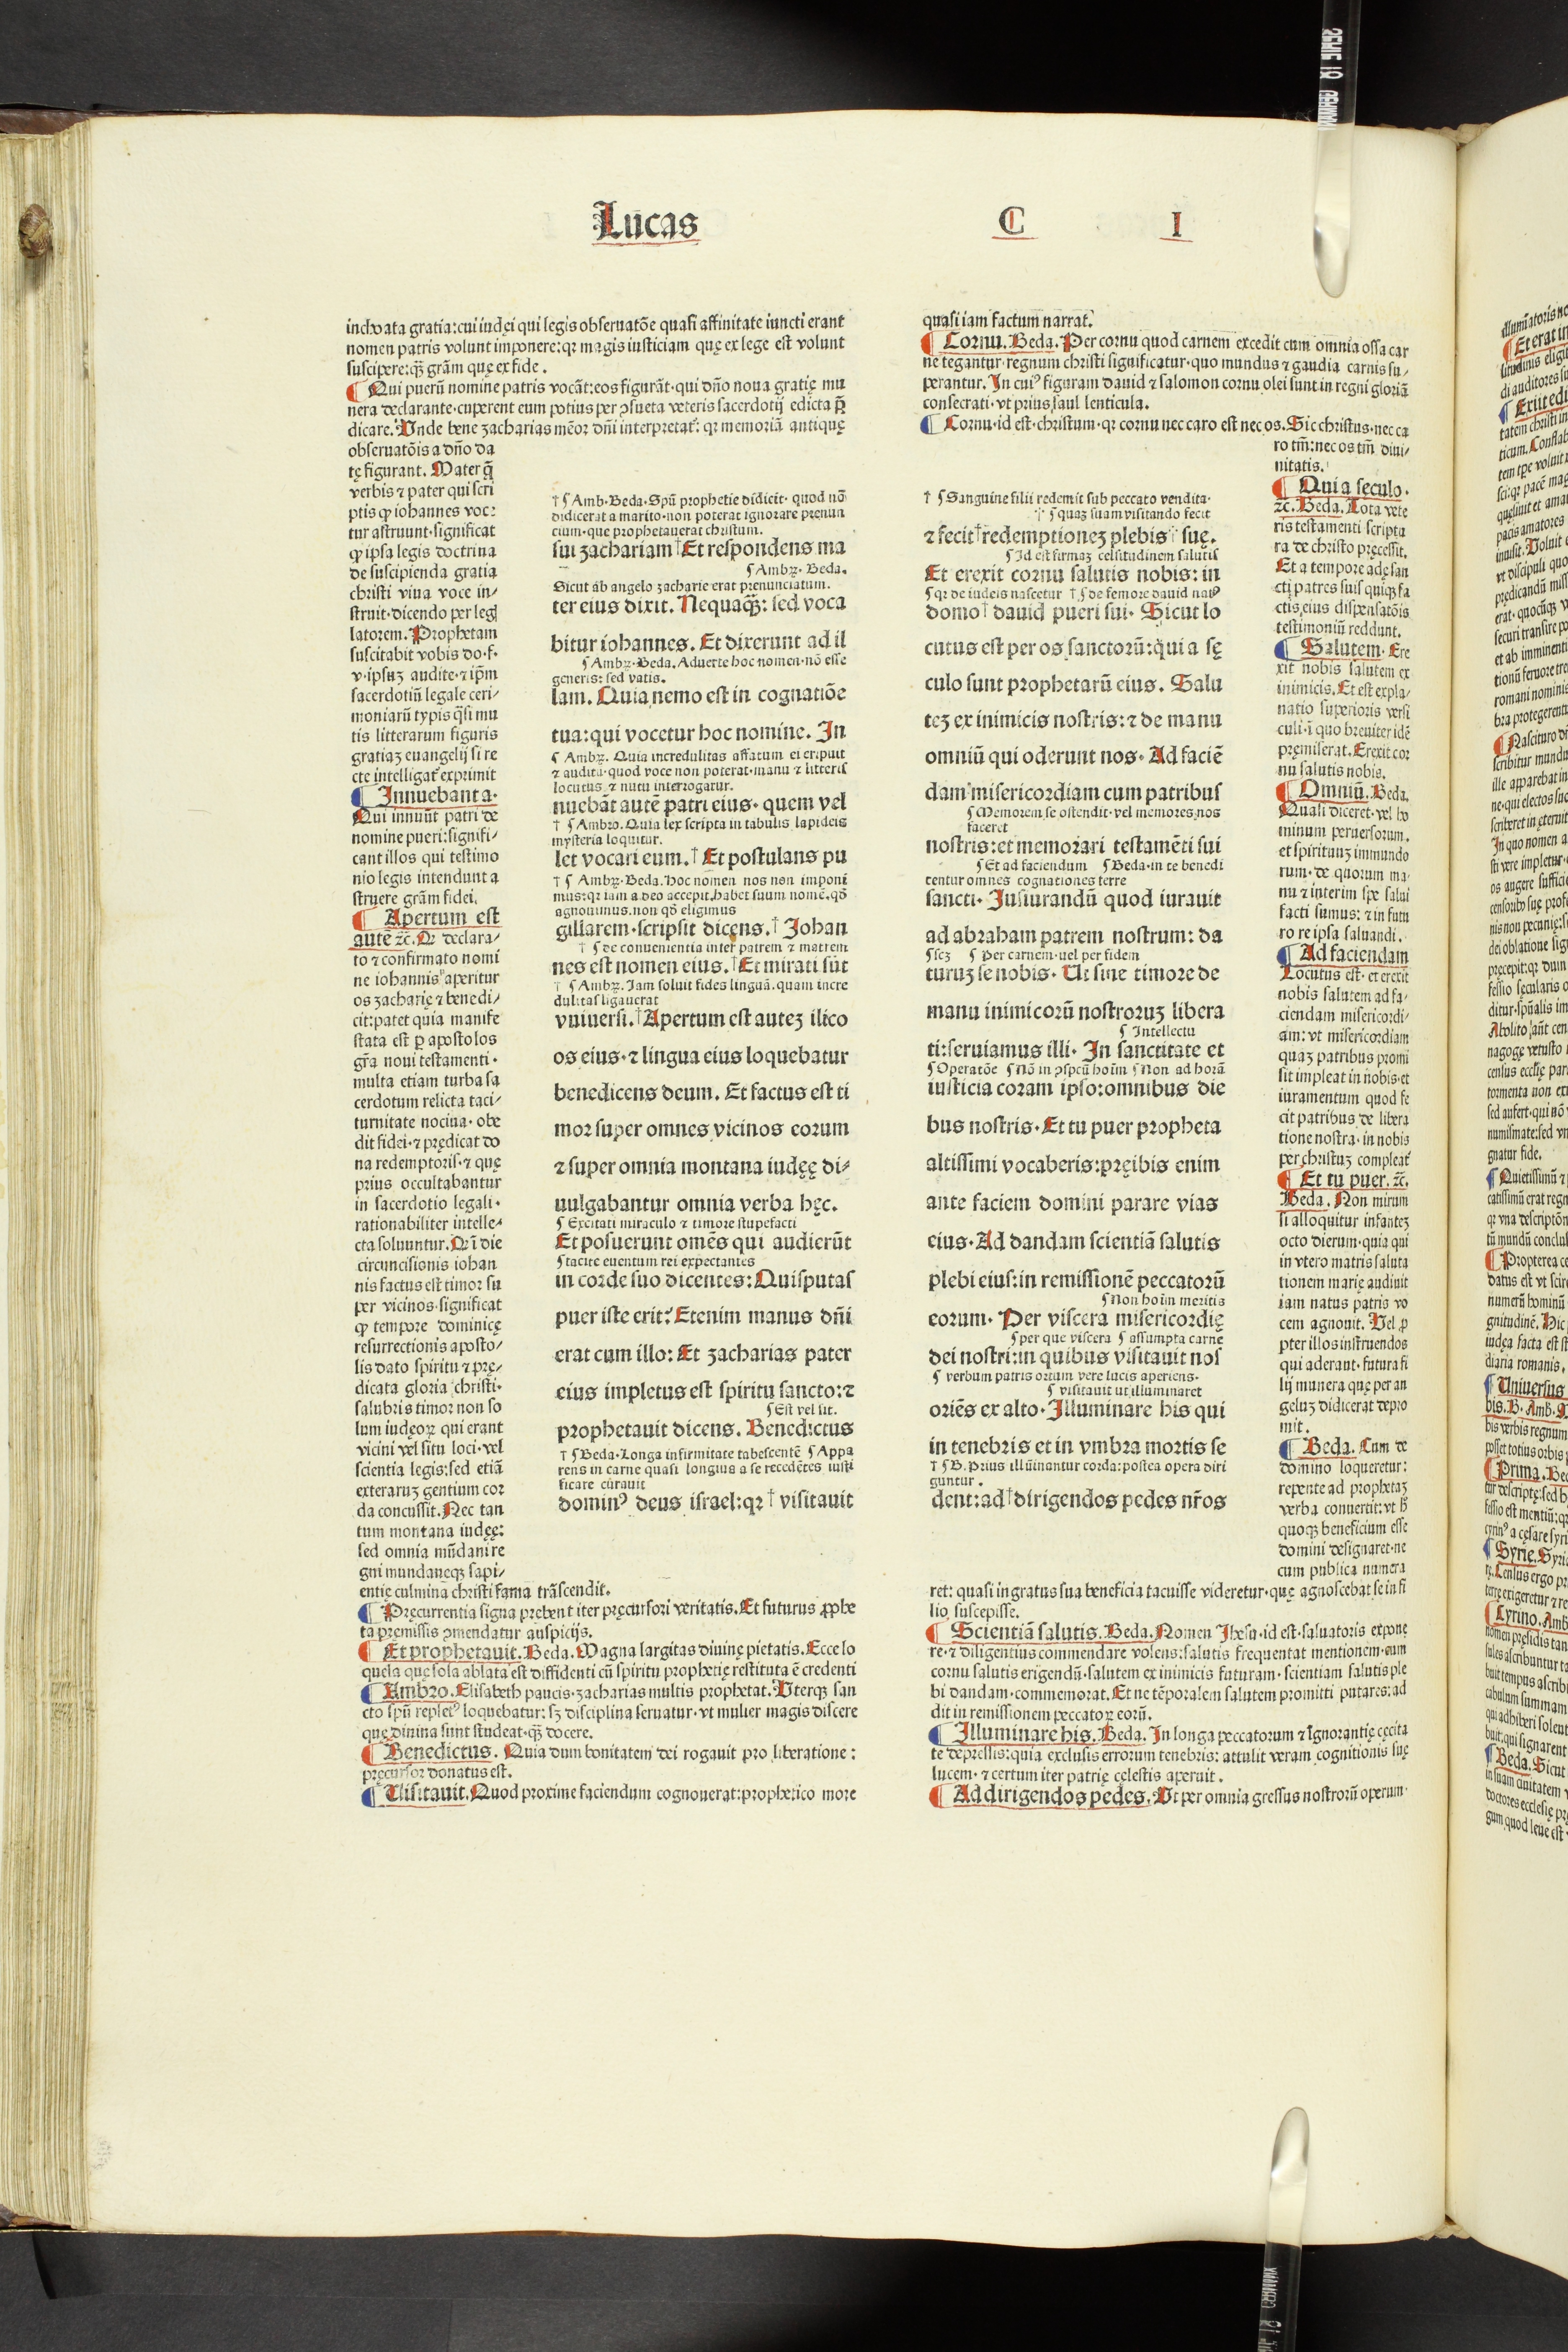 Lucas C I
inchoata gratia:cui iudęi qui legis obseruatōe quasi affinitate iuncti erant
nomen patris volunt imponere:qꝛ magis iusticiam quę ex lege est volunt
suscipere:qꝫ grām quę ex fide .
¶ Qui puerū nomine patris vocāt:eos figurāt·qui dño noua gratię mu
nera declarante·cuperent eum potius per ꝯsueta veteris sacerdotij edicta p̄
dicare. Unde bene zacharias mēor dñi interpretat᷑: qꝛ memoriā antiquę
obseruatōis a dño da
tę figurant. Mater q̄
verbis ⁊ pater qui scri
ptis ꝙ iohannes voc⸗
tur astruunt·significat
ꝙ ipsa legis doctrina
de suscipienda gratia
christi viua voce in⸗
struit·dicendo per legſ
latorem. Prophetam
suscitabit vobis do·f·
v·ipsuꝫ audite·⁊ ip̄m
sacerdotiū legale ceri⸗
moniarū typis q̄si mu
tis litterarum figuris
gratiaꝫ euangelij si re
cte intelligat᷑ exprimit
¶ Innuebant a·
Qui innuūt patri de
nomine pueri:signifi⸗
cant illos qui testimo
nio legis intendunt a
struere grām fidei.
¶ Apertum est
autē ⁊c̄. Qꝛ declara⸗
to ⁊ confirmato nomi
ne iohannis aperitur
os zacharię ⁊ benedi⸗
cit:patet quia manife
stata est ꝑ apostolos
gr̄a noui testamenti ·
multa etiam turba sa
cerdotum relicta taci⸗
turnitate nociua· obe
dit fidei·⁊ prędicat do
na redemptoris·⁊ quę
prius occultabantur
in sacerdotio legali ·
rationabiliter intelle⸗
cta soluuntur. Qꝛ ī die
circuncisionis iohan
nis factus est timor su
per vicinos·significat
ꝙ tempore dominicę
resurrectionis aposto⸗
lis dato spiritu ⁊ prę⸗
dicata gloria christi·
salubris timor non so
lum iudęoꝝ qui erant
vicini vel situ loci·vel
scientia legis:sed etiā
exteraruꝫ gentium cor
da concussit. Nec tan
tum montana iudęę:
sed omnia mūdani re
gni mundaneqꝫ sapi⸗
entię culmina christi fama trāscendit.
¶ Pręcurrentia signa prebent iter pręcursori veritatis. Et futurus ꝓphe
ta pręmissis ꝯmendatur auspicijs.
¶ Et prophetauit. Beda. Magna largitas diuinę pietatis. Ecce lo
quela quę sola ablata est diffidenti cū spiritu prophetię restituta ē credenti
¶ Ambro. Elisabeth paucis·zacharias multis prophetat. Uterqꝫ san
cto spū repletꝰ loquebatur: sꝫ disciplina seruatur·vt mulier magis discere
que diuina sunt studeat·qꝫ docere.
¶ Benedictus. Quia dum bonitatem dei rogauit pro liberatione :
pręcursor donatus est.
¶ Uisitauit. Quod proxime faciendum cognouerat:prophetico more
† ¶ Amb·Beda·Spū prophetie didicit· quod nō
didicerat a marito·non poterat ignorare prenun
cium·que prophetauerat christum.
sui zachariam † Et respondens ma
¶ Ambꝝ. Beda.
Sicut ab angelo zacharie erat prenunciatum.
ter eius dixit. Nequaq̄ꝫ: sed voca
bitur iohannes. Et dixerunt ad il
¶ Ambꝝ·Beda. Aduerte hoc nomen·nō esse
generis: sed vatis.
lam. Quia nemo est in cognatiōe
tua:qui vocetur hoc nomine. In
¶ Ambꝝ. Quia incredulitas affatum ei eripuit
⁊ auditū·quod voce non poterat·manu ⁊ litteris
locutus ⁊ nutu interrogatur.
nuebāt autē patri eius· quem vel
† ¶ Ambro. Quia lex scripta in tabulis lapideis
mysteria loquitur.
let vocari eum. † Et postulans pu
† ¶ Ambꝝ·Beda. hoc nomen nos non imponi
mus:qꝛ iam a deo accepit. habet suum nomē. qd̄
agnouimus. non qd̄ eligimus
gillarem·scripsit dicens. † Johan
† ¶ de conuenientia inter patrem ⁊ matrem
nes est nomen eius. † Et mirati sūt
† ¶ Ambꝝ. Jam soluit fides linguā. quam incre
dulitas ligauerat
vniuersi. † Apertum est auteꝫ ilico
os eius·⁊ lingua eius loquebatur
benedicens deum. Et factus est ti
mor super omnes vicinos eorum
⁊ super omnia montana iudęę di⸗
uulgabantur omnia verba hęc.
¶ Excitati miraculo ⁊ timore stupefacti
Et posuerunt omēs qui audierūt
¶ tacite euentum rei expectantes
in corde suo dicentes: Quisputas
puer iste erit? Etenim manus dñi
erat cum illo: Et zacharias pater
eius impletus est spiritu sancto:⁊
¶ Est vel sit.
prophetauit dicens. Benedictus
† ¶ Beda·Longa infirmitate tabescentē ¶ Appa
rens in carne quasi longius a se recedētes iusti
ficare curauit
dominꝰ deus israel:qꝛ † visitauit
quasi iam factum narrat᷑.
¶ Cornu. Beda. Per cornu quod carnem excedit cum omnia ossa car
ne tegantur·regnum christi significatur·quo mundus ⁊ gaudia carnis su⸗
perantur. In cuiꝰ figuram dauid ⁊ salomon cornu olei sunt in regni gloriā
consecrati·vt prius saul lenticula.
¶ Cornu·id est·christum·qꝛ cornu nec caro est nec os. Sic christus·nec ca
ro tm̄:nec os tm̄ diui⸗
nitatis.
¶ Quia seculo·
⁊c̄. Beda. Tota vete
ris testamenti scriptu
ra de christo pręcessit.
Et a tempore adę san
cti patres suis quiqꝫ fa
ctis eius dispensatōis
testimoniū reddunt.
¶ Salutem· Ere
xit nobis salutem ex
inimicis. Et est expla⸗
natio superioris versi
culi·ī quo breuiter idē
pręmiserat. Erexit cor
nu salutis nobis.
¶ Omniū. Beda.
Quasi diceret·vel ho
minum peruersorum.
et spirituuꝫ immundo
rum· de quorum ma
nu ⁊ interim spe salui
facti sumus: ⁊ in futu
ro re ipsa saluandi.
¶ Ad faciendam
Locutus est· et erexit
nobis salutem ad fa⸗
ciendam misericordi⸗
am: vt misericordiam
quaꝫ patribus promi
sit impleat in nobis·et
iuramentum quod fe
cit patribus de libera
tione nostra· in nobis
per christuꝫ compleat᷑
¶ Et tu puer. ⁊c̄.
Beda. Non mirum
si alloquitur infanteꝫ
octo dierum·quia qui
in vtero matris saluta
tionem marię audiuit
iam natus patris vo
cem agnouit. Uel ꝓ
pter illos instruendos
qui aderant·futura fi
lij munera quę per an
geluꝫ didicerat depro
mit.
¶ Beda. Cum de
domino loqueretur:
repente ad prophetaꝫ
verba conuertit: vt h̄
quoqꝫ beneficium esse
domini designaret·ne
cum publica numera
ret: quasi ingratus sua beneficia tacuisse videretur·quę agnoscebat se in fi
lio suscepisse.
¶ Scientiā salutis. Beda. Nomen Jhesu·id est·saluatoris expone
re·⁊ diligentius commendare volens:salutis frequentat mentionem·eum
cornu salutis erigendū·salutem ex inimicis futuram·scientiam salutis ple
bi dandam·commemorat. Et ne tēporalem salutem promitti putares:ad
dit in remissionem peccatoꝝ eorū.
¶ Illuminare his. Beda. In longa peccatorum ⁊ Ignorantię cęcita
te depressis:quia exclusis errorum tenebris: attulit veram cognitionis suę
lucem· ⁊ certum iter patrię cęlestis aperuit .
¶ Ad dirigendos pedes. Ut per omnia gressus nostrorū operum·
† ¶ Sanguine filii redemit sub peccato vendita·
† ¶ quaꝫ suam visitando fecit
⁊ fecit † redemptioneꝫ plebis † suę.
¶ Id est firmaꝫ celsitudinem salutis
Et erexit cornu salutis nobis: in
¶ qꝛ de iudeis nascetur † ¶ de femore dauid natꝰ
domo † dauid pueri sui· Sicut lo
cutus est per os sanctorū:qui a sę
culo sunt prophetarū eius. Salu
teꝫ ex inimicis nostris:⁊ de manu
omniū qui oderunt nos· Ad faciē
dam misericordiam cum patribus
¶ Memorem se ostendit·vel memores nos
faceret
nostris:et memorari testamēti sui
¶ Et ad faciendum ¶ Beda·in te benedi
centur omnes cognationes terre
sancti· Jusiurandū quod iurauit
ad abraham patrem nostrum: da
¶ scꝫ ¶ per carnem·uel per fidem
turuꝫ se nobis· Ut sine timore de
manu inimicorū nostroruꝫ libera
¶ Intellectu
ti:seruiamus illi· In sanctitate et
¶ Operatōe ¶ Nō in ꝯspcū hoīm ¶ Non ad horā
iusticia coram ipso:omnibus die
bus nostris· Et tu puer propheta
altissimi vocaberis:pręibis enim
ante faciem domini parare vias
eius· Ad dandam scientiā salutis
plebi eius:in remissionē peccatorū
¶ Non hoīm meritis
eorum· Per viscera misericordię
¶ per que viscera ¶ assumpta carne
dei nostri:in quibus visitauit nos
¶ verbum patris ortum vere lucis aperiens·
¶ visitauit ut illuminaret
oriēs ex alto· Illuminare his qui
in tenebris et in vmbra mortis se
† ¶ B. Prius illūinantur corda:postea opera diri
guntur .
dent:ad † dirigendos pedes nr̄os